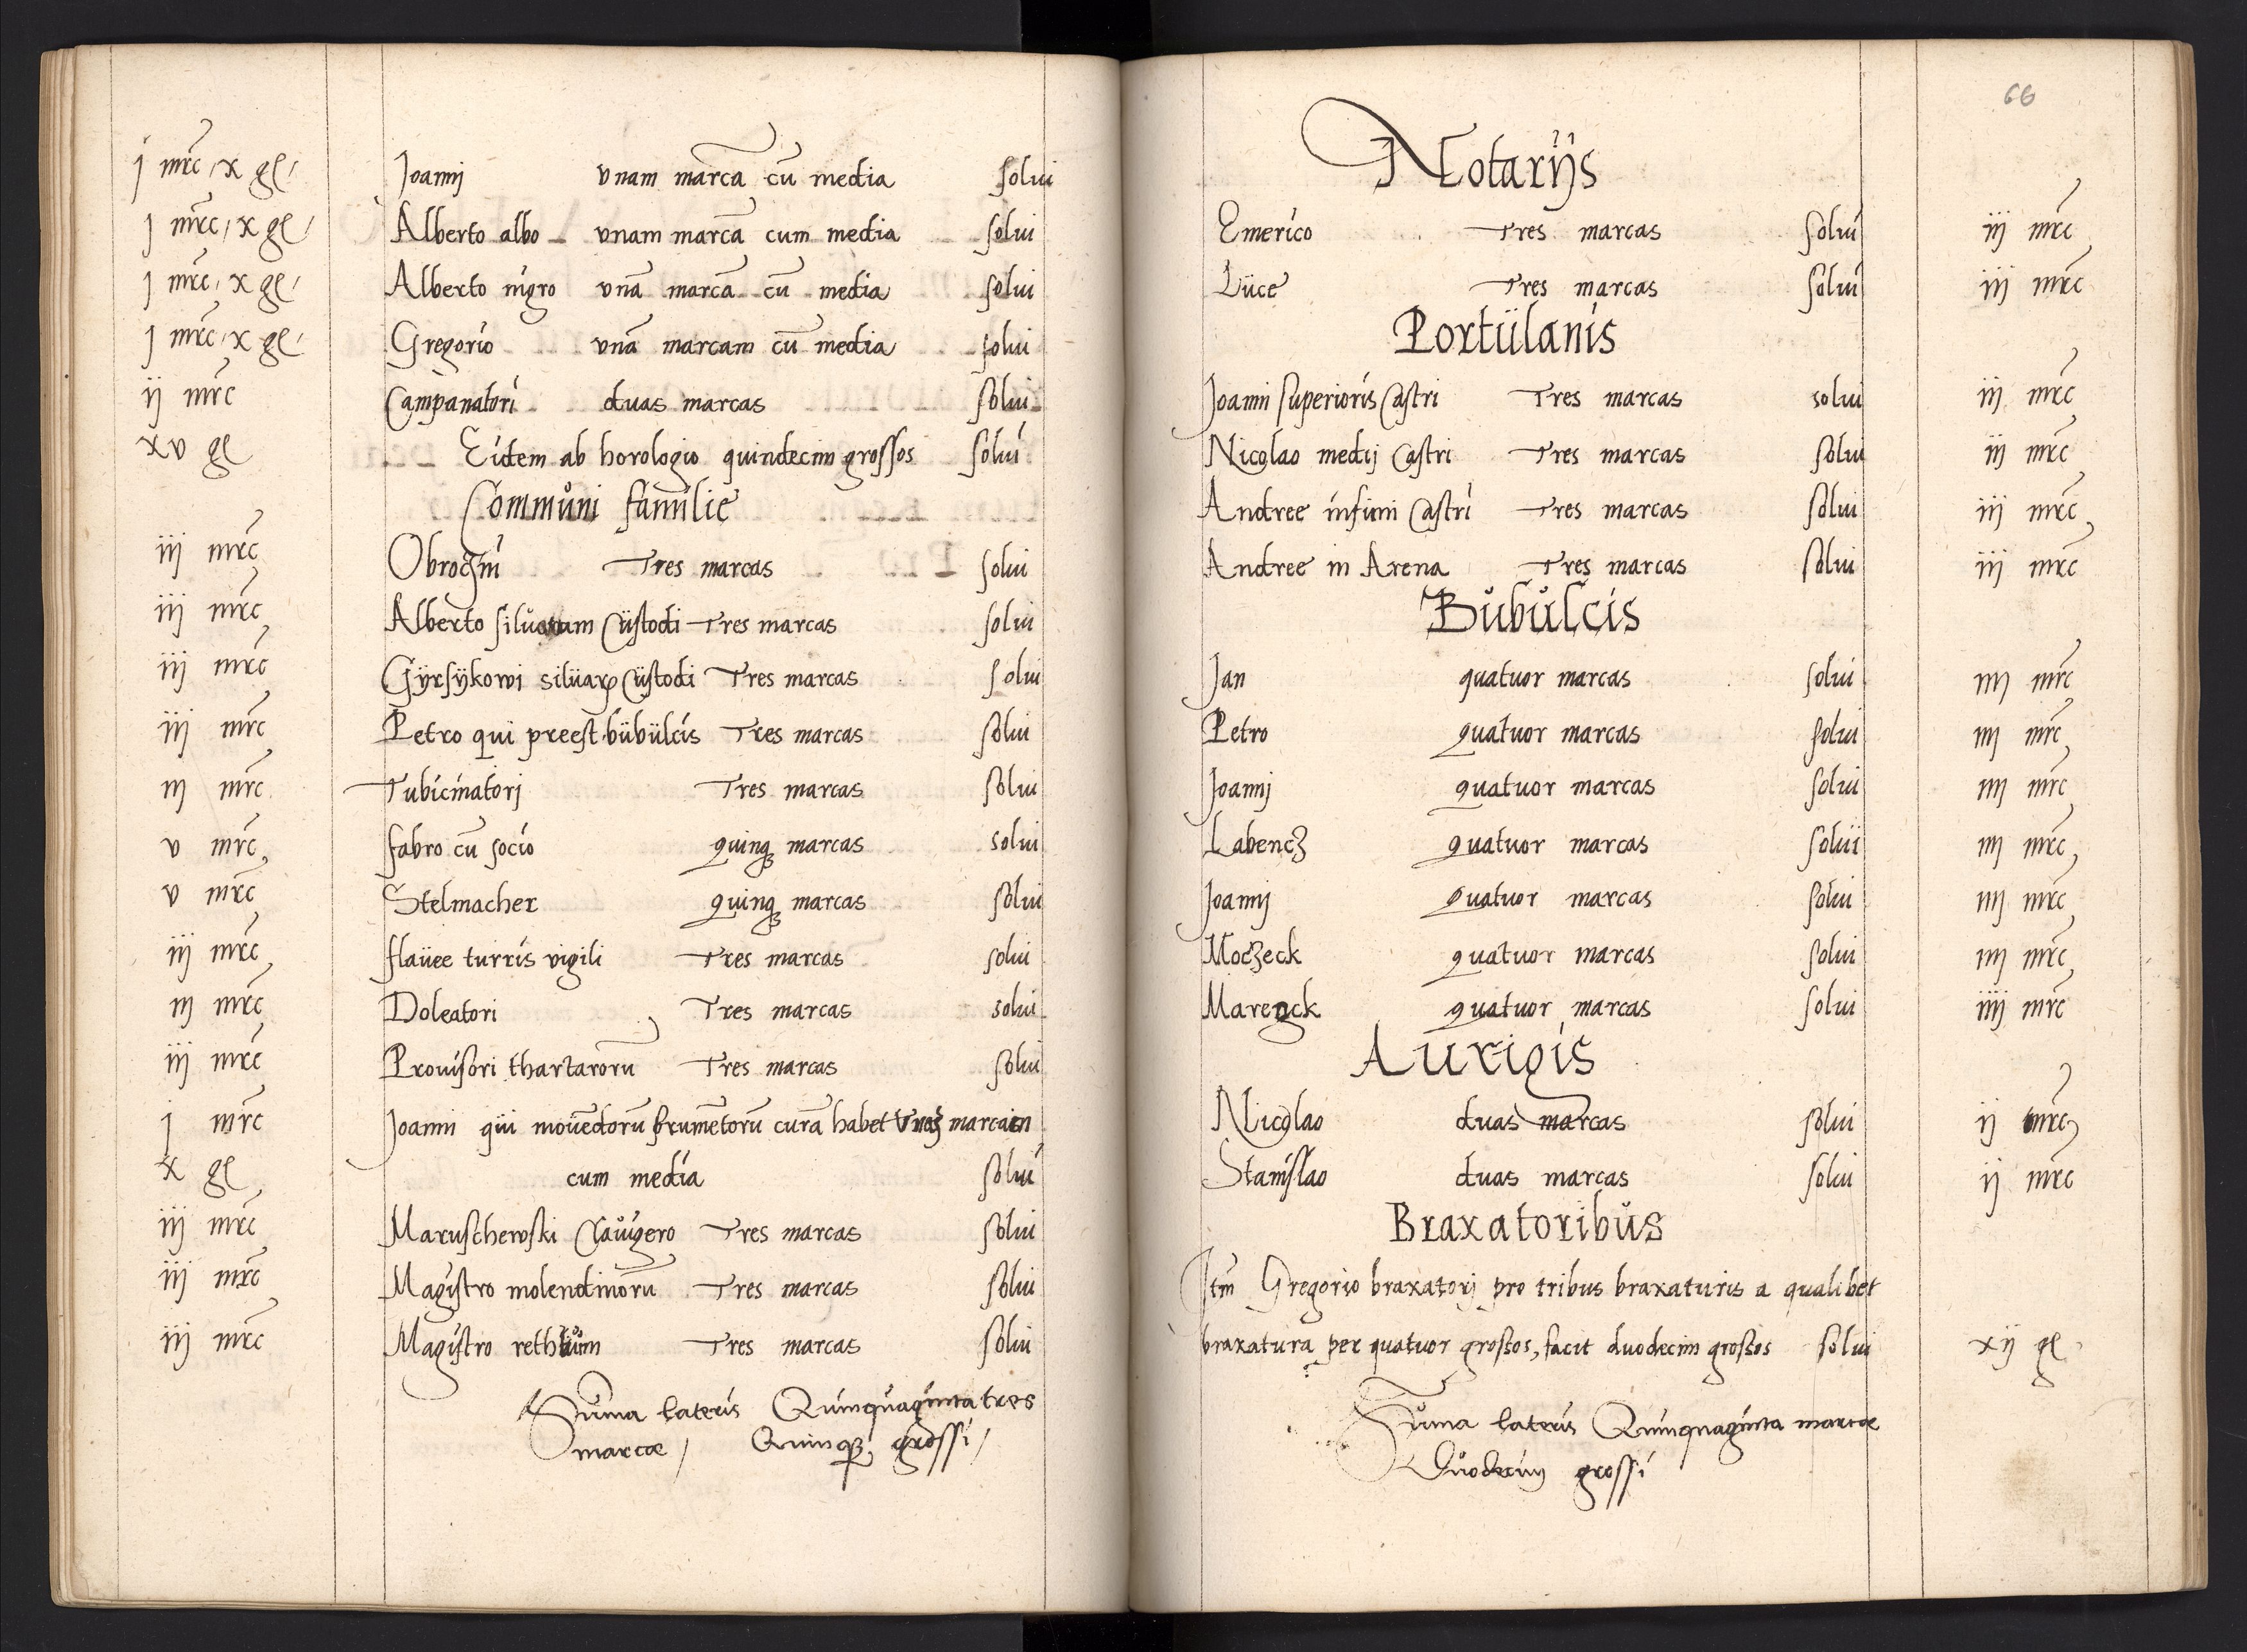 j mrc / x gl / Joanni vnam marcā cū media solui
j mrc / x gl / Alberto albo vnam marcā cum media solui
j mrc / x gl / Alberto nigro vnā marcā cū media solui
j mrc / x gl / Gregorio vnā marcam cū media solui
ij mrc Campanatori duas marcas solui
xv gl Eidem ab horologio quindecim grossos solui
Commůni familie
iij mrc Obroczni Tres marcas solui
iij mrc Alberto siluarum Custodi Tres marcas solui
iij mrc Gÿrsÿkowi silüarꝝ Cüstodi Tres marcas solui
iij mrc Petro qui preest bübülcis Tres marcas solui
iij mrc Tubicinatorj Tres marcas solui
v mrc fabro cū socio quinqꝫ marcas solui
v mrc Stelmacher quinqꝫ marcas solui
iij mrc flaüee turris vigili Tres marcas solui
iij mrc Doleatori Tres marcas solui
iij mrc Prouisori thartarorū Tres marcas solui
j mrc Joanni qui mouēdorū frumētorū curā habet marcam
x gl cum media solui
iij mrc Maruschewski Claůigero Tres marcas solui
iij mrc Magistro molendinorū Tres marcas solui
iij mrc Magistro Tres marcas solui
Sūma lateris Quinquaginta tres
marcæ / Quinqꝫ grossi /
66
Notarijs
Emerico Tres marcas solui iij mrc
Lüce Tres marcas solui iij mrc
Portülanis
Joanni superioris Castri Tres marcas solui iij mrc
Nicolao medij Castri Tres marcas solui iij mrc
Andree infimi Castri Tres marcas solui iij mrc
Andree in Arena Tres marcas solui iij mrc
Bůbůlcis
Jan quatuor marcas solui iiij mrc
Petro quatuor marcas solui iiij mrc
Joannj quatuor marcas solui iiij mrc
Labencz quatuor marcas solui iiij mrc
Joannj quatuor marcas solui iiij mrc
Moczeck quatuor marcas solui iiij mrc
Mareyck quatuor marcas solui iiij mrc
Aurigis
Nicolao duas marcas solui ij mrc
Stanislao duas marcas solui ij mrc
Braxatoribůs
Itm Gregorio braxatorj pro tribus braxaturis a qualibet
braxatura per quatuor grossos, facit duodecim grossos solui xij gl
Sūma lateris Quinquaginta marcæ
Duodecim grossi